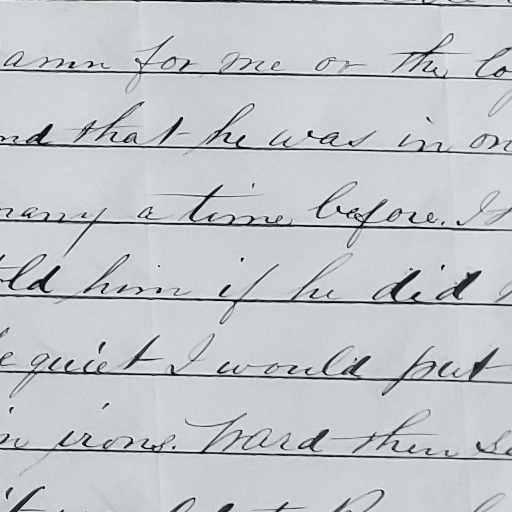 amn for me or the lo
nd that he was in on
many a time before. I t
old him if he did n
be quiet I would put
in irons. Ward then sa